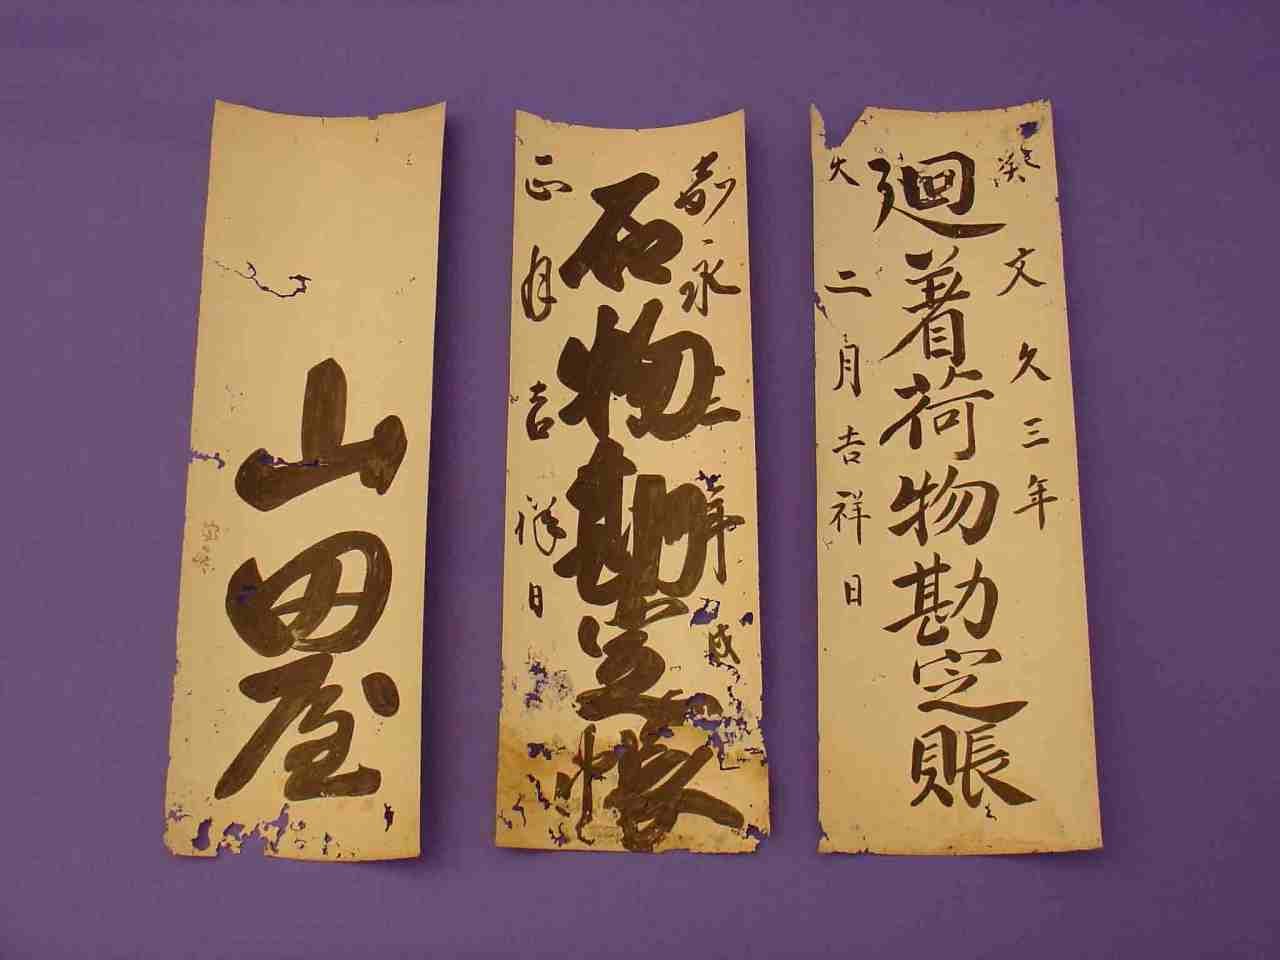 癸
文久三年
廻着荷物勘定賬
大
二月吉祥日
嘉永三年
戌
石物勘定帳
正月吉祥日
山田屋